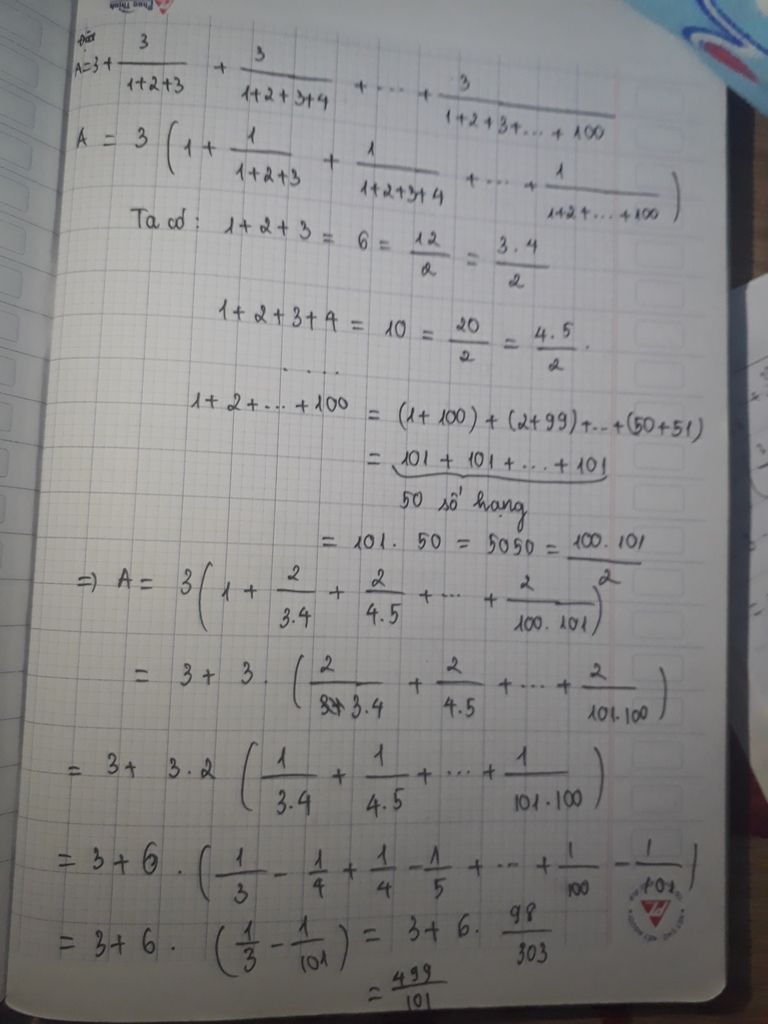 Phúc Thịnh
Đặt
A = 3 + 3/(1+2+3) + 3/(1+2+3+4) + ... + 3/(1+2+3+...+100)
A = 3 (1 + 1/(1+2+3) + 1/(1+2+3+4) + ... + 1/(1+2+...+100))
Ta có: 1+2+3 = 6 = 12/2 = 3.4/2
1+2+3+4 = 10 = 20/2 = 4.5/2.
....
1+2+...+100 = (1+100) + (2+99) +...+ (50+51)
= 101 + 101 + ... + 101
50 số hạng
= 101. 50 = 5050 = 100.101/2
=) A = 3(1 + 2/3.4 + 2/4.5 + ... + 2/100.101)
= 3 + 3. (2/3.4 + 2/4.5 + ... + 2/101.100)
= 3 + 3.2 (1/3.4 + 1/4.5 + ... + 1/101.100)
= 3 + 6. (1/3 - 1/4 + 1/4 - 1/5 + ... + 1/100 - 1/101)
= 3 + 6. (1/3 - 1/101) = 3 + 6. 98/303
= 499/101